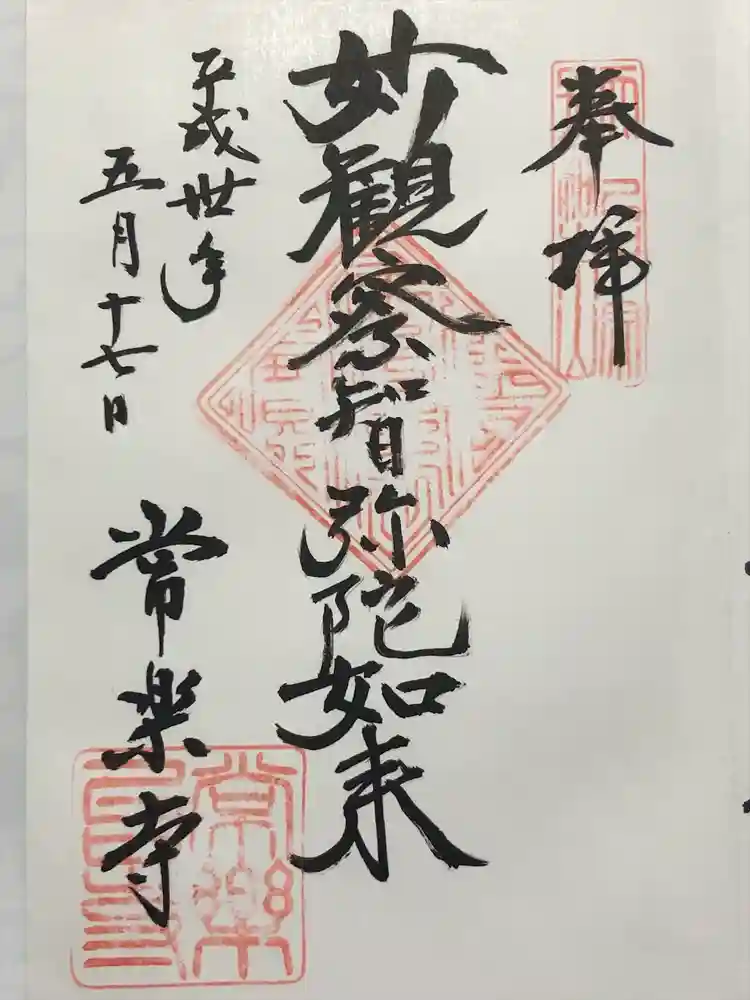 奉拝
妙観察智弥陀如来
平成丗年
五月十七日
常楽寺
常樂